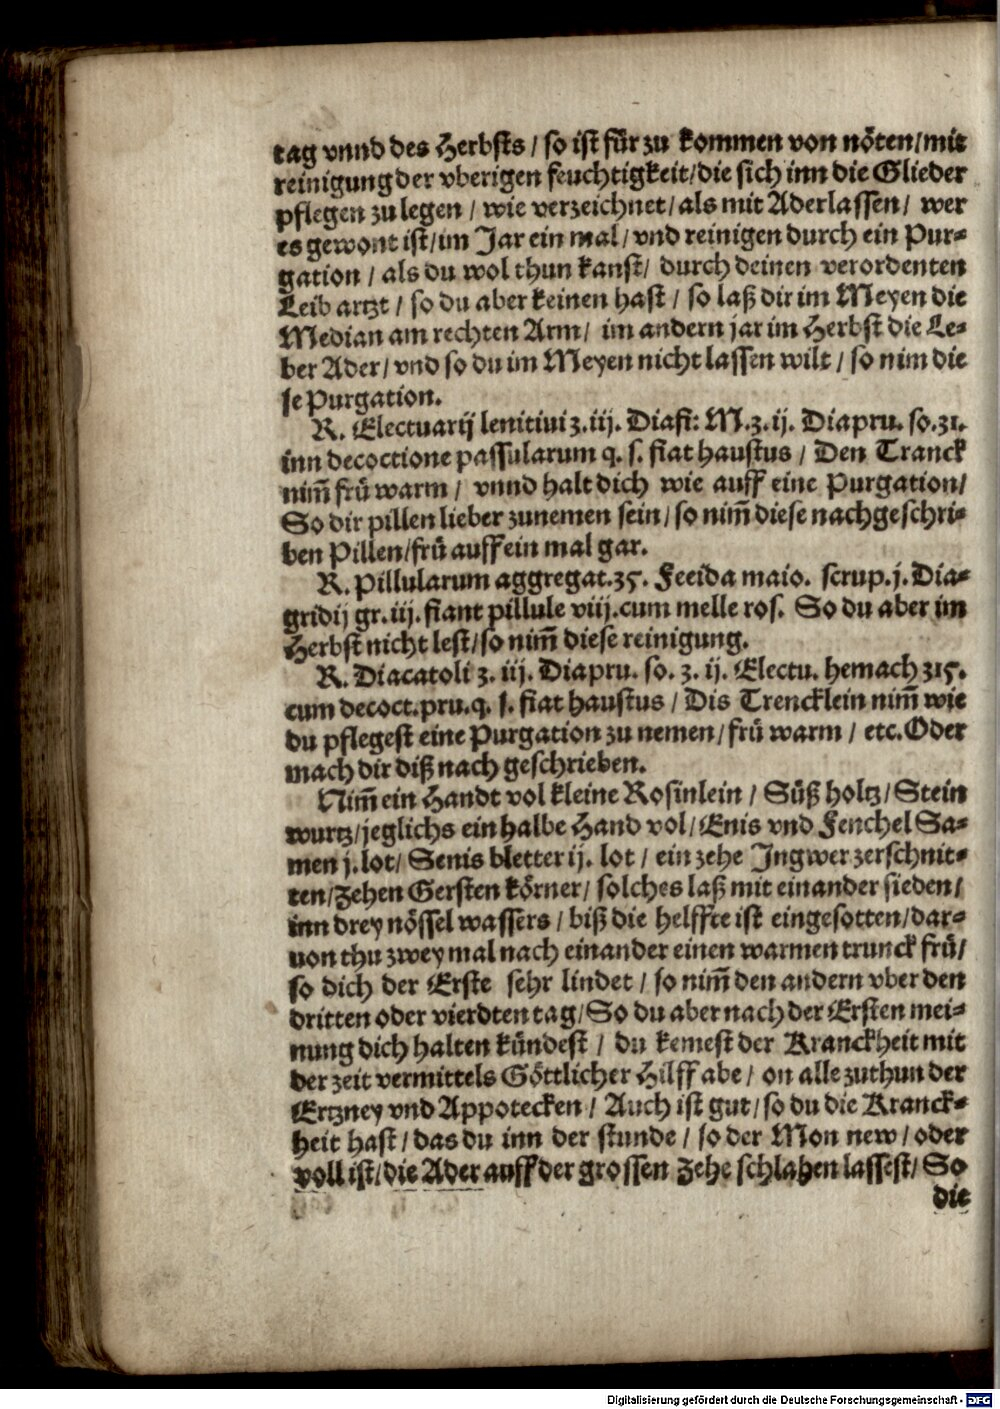 tag vnnd des Herbsts / so ist für zu kommen von nöten/mit
reinigung der vberigen feuchtigkeit/die sich inn die Glieder
pflegen zu legen / wie verzeichnet/als mit Aderlassen/ wer
es gewont ist/im Jar ein mal/vnd reinigen durch ein Pur=
gation / als du wol thun kanst/ durch deinen verordenten
Leib artzt / so du aber keinen hast / so laß dir im Meyen die
Median am rechten Arm/ im andern jar im Herbst die Le=
ber Ader/vnd so du im Meyen nicht lassen wilt / so nim die
se Purgation.
R. Electuarij lenitiui ʒ.iij. Diafi: M.ʒ.ij. Diapru. so.ʒ1.
inn decoctione passularum q. s. fiat haustus / Den Tranck
nim̃ frü warm / vnnd halt dich wie auff eine Purgation/
So dir pillen lieber zunemen sein/so nim̃ diese nachgeschri=
ben Pillen/frü auff ein mal gar.
R. Pillularum aggregat.ʒ5. Feeida maio. scrup.j. Dia=
gridij gr.iij.fiant pillule viij.cum melle ros. So du aber im
Herbst nicht lest/so nim̃ diese reinigung.
R. Diacatoli ʒ. iij. Diapru. so. ʒ. ij. Electu. hemach ʒ15.
cum decoct.pru.q. s. fiat haustus / Dis Trencklein nim̃ wie
du pflegest eine Purgation zu nemen/frü warm / etc.Oder
mach dir diß nach geschrieben.
Nim̃ ein Handt vol kleine Rosinlein / Süß holtz/Stein
wurtz/jeglichs ein halbe Hand vol/Enis vnd Fenchel Sa=
men j.lot/ Senis bletter ij. lot / ein zehe Ingwer zerschnit=
ten/Zehen Gersten körner/ solches laß mit einander sieden/
inn drey nössel wassers / biß die helffte ist eingesotten/dar=
uon thu zwey mal nach einander einen warmen trunck frü/
so dich der Erste sehr lindet / so nim̃ den andern vber den
dritten oder vierdten tag/So du aber nach der Ersten mei=
nung dich halten kündest / du kemest der Kranckheit mit
der zeit vermittels Göttlicher Hilff abe/ on alle zuthun der
Ertzney vnd Appotecken / Auch ist gut/so du die Kranck=
heit hast/das du inn der stunde / so der Mon new/oder
voll ist/die Ader auff der grossen Zehe schlahen lassest/ So
die
Digitalisierung gefördert durch die Deutsche Forschungsgemeinschaft - DFG